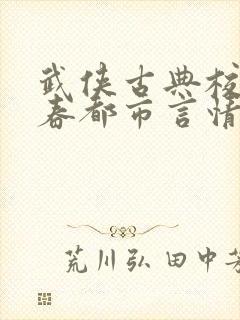 武侠古典校
春都市言情
荒川弘田中芳